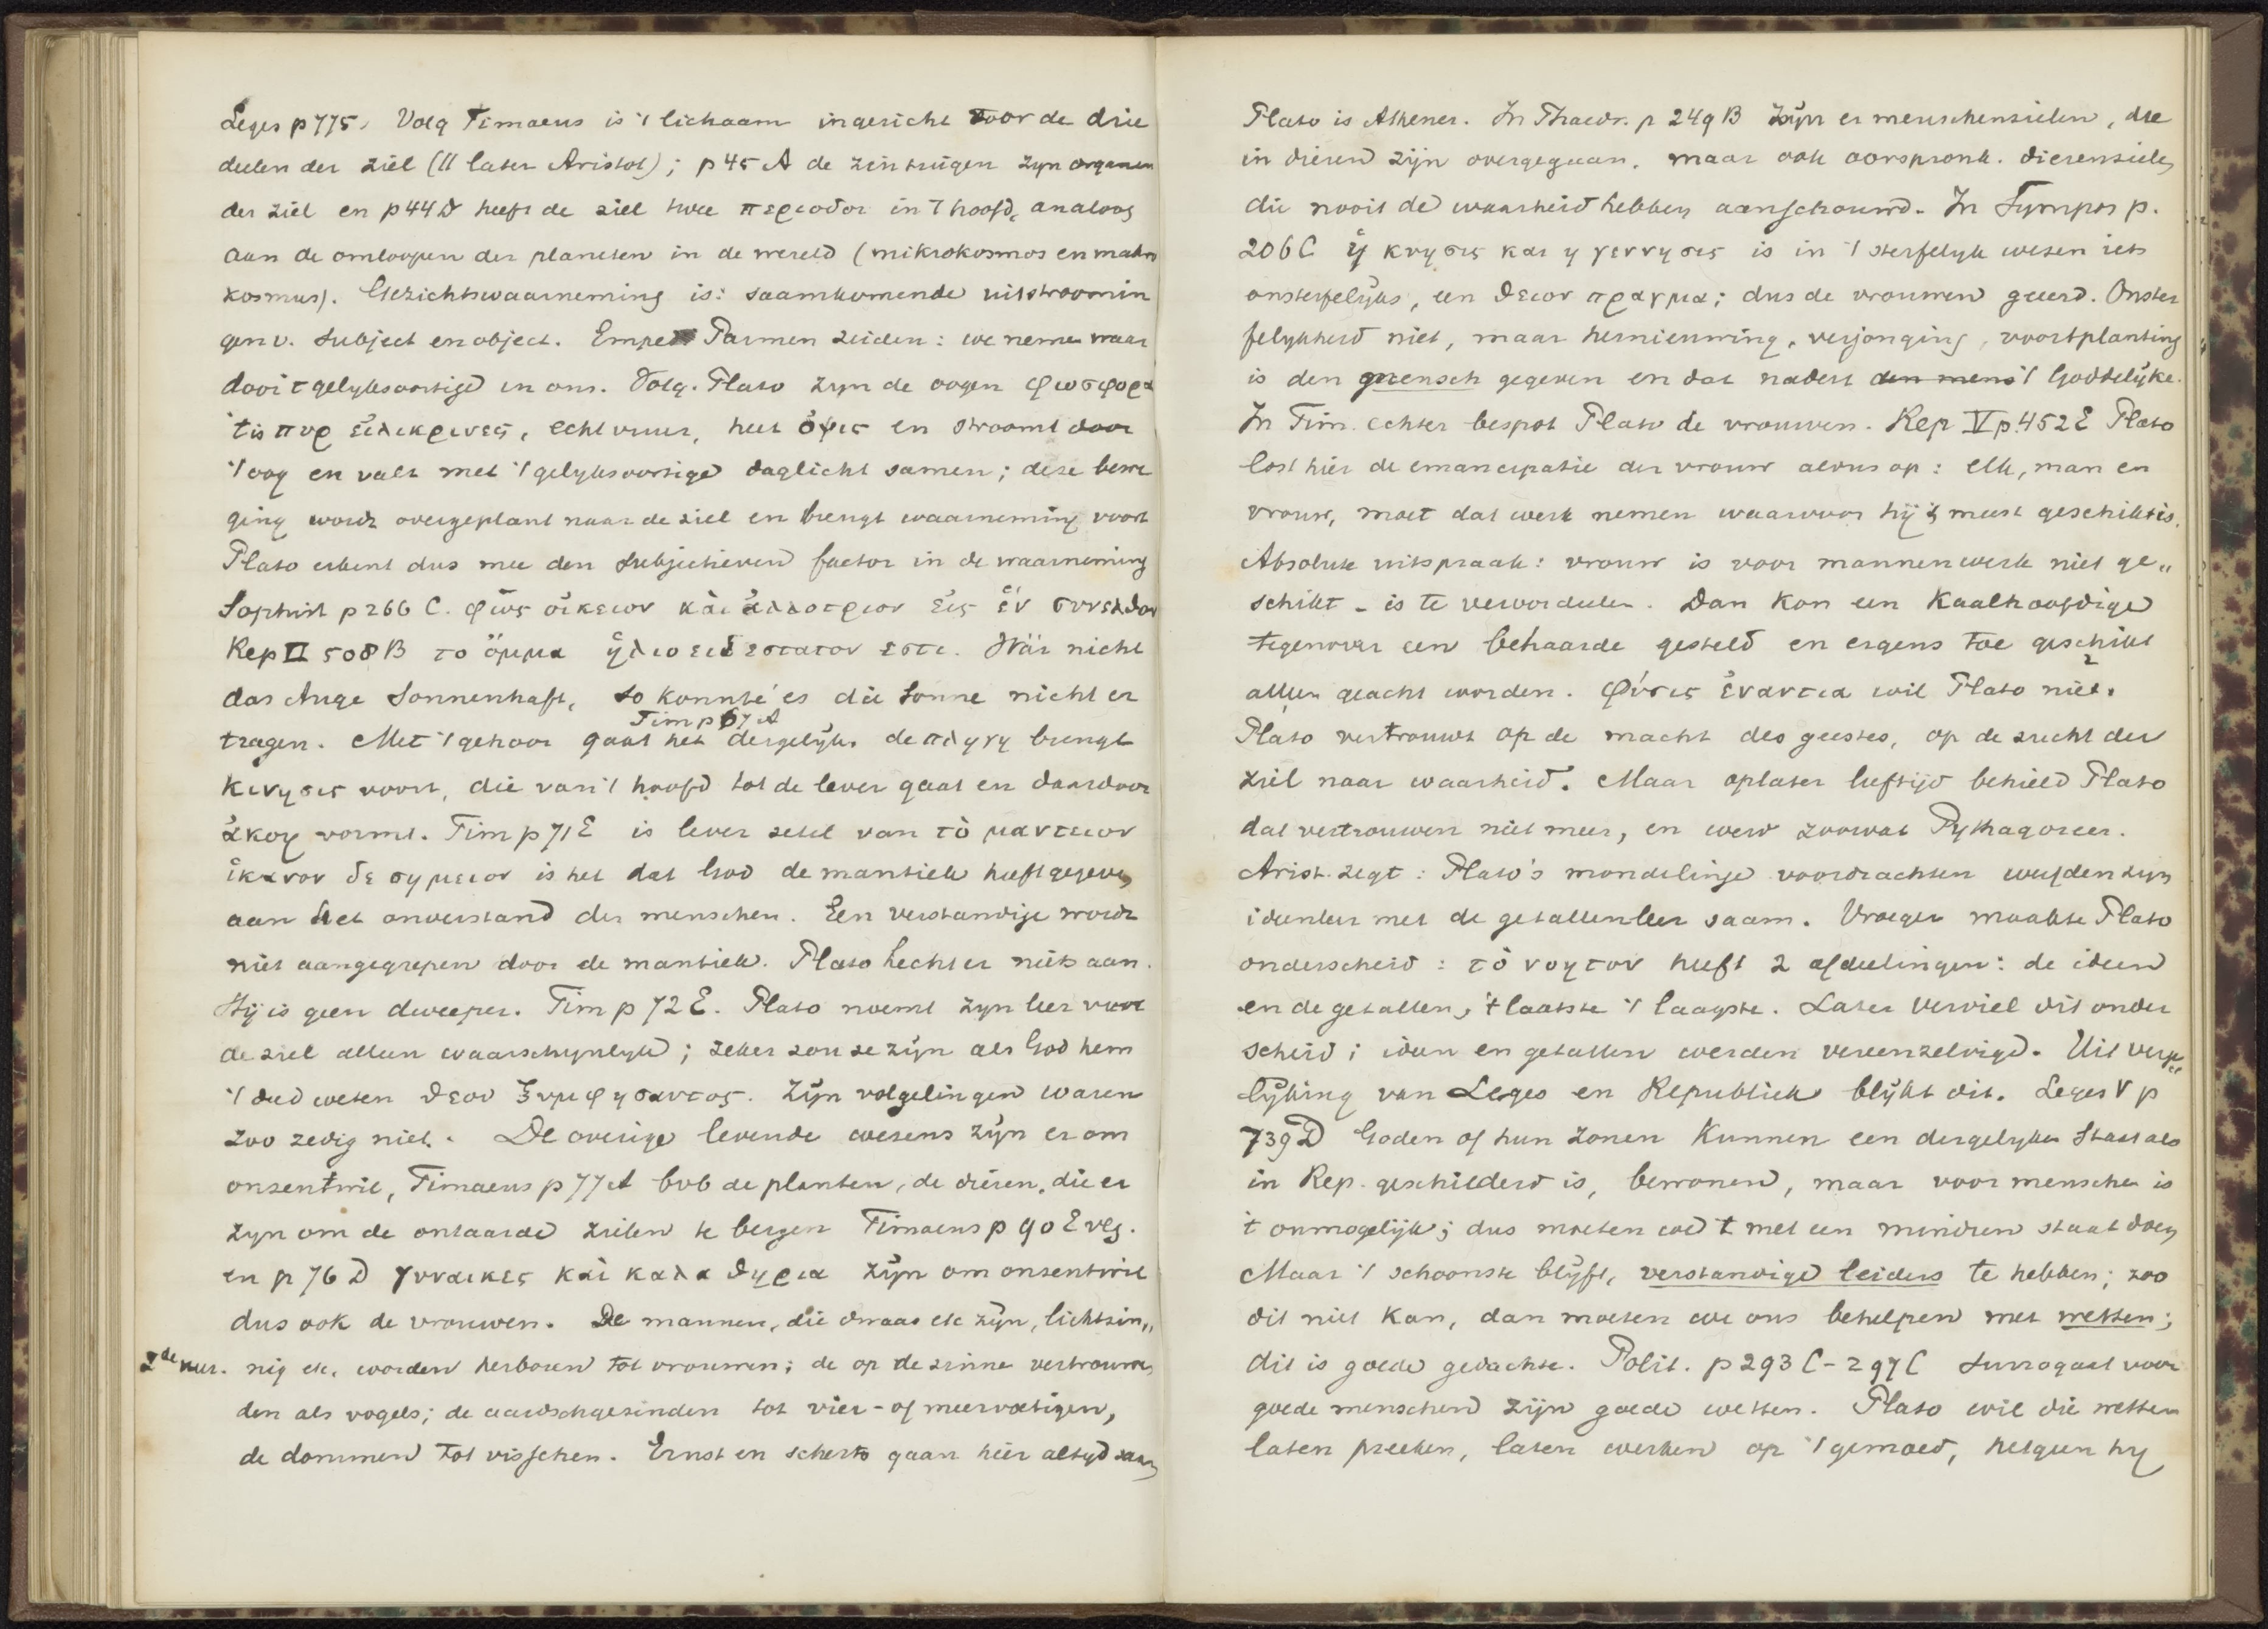 Leges p 775. Volg Timaeus is 't lichaam ingericht voor de drie
deelen der ziel (11 later Aristot); p 45 A de zintuigen zyn organen
der ziel en p 44 D heeft de ziel twee περιοδοι in 't hoofd, analoog
aan de omloopen der planeten in de wereld (mikrokosmos en makro
kosmus). Gezichtswaarneming is: saamkomende uitstroomin
gen v. subject en object. Emped Parmen zeiden: we neme waar
door 't gelyksoortige in ons. Volg. Plato zyn de oogen φωσφορα
't is πυρ εἰλικρινες, echt vuur, heet ὄψις en stroomt door
't oog en valt met 't gelyksoortige daglicht samen; deze bewe
ging wordt overgeplant naar de ziel en brengt waarneming voort
Plato erkent dus mee den subjectieven factor in de waarneming
Sophist p 266 C. φῶς οἰκειον καὶ ἀλλοτριον εἰς ἑν συνελθον
Rep II 508 B το ὄμμα ἡλιοειδεστατον εστι. Wär nicht
das Auge sonnenhaft, so konnte es die Sonne nicht er
Tim p 67 A
tragen. Met 't gehoor gaat het dergelyk. de πληγη brengt
κινησις voort, die van 't hoofd tot de lever gaat en daardoor
ἀκοη vormt. Tim p 71 E is lever zetel van τὸ μαντειον
ἱκανον δε σημειον is het dat God de mantiek heeft gegeven
aan het onverstand der menschen. Een verstandige wordt
niet aangegrepen door de mantiek. Plato hecht er niets aan.
Hij is geen dweeper. Tim p 72 E. Plato noemt zyn leer voor
de ziel alleen waarschynlyk; zeker zou ze zijn als God hem
't deed weten θεου ξυμφησαντος. Zijn volgelingen waren
zoo zedig niet. De overige levende wezens zijn er om
onzentwil, Timaeus p 77 A bvb de planten, de dieren, die er
zyn om de ontaarde zielen te bergen Timaeus p 90 E vlg.
en p 76 D γυναικες καὶ καλα θηρια zijn om onzentwil
dus ook de vrouwen. De mannen, die dwaas etc zijn, lichtzin„
2de kur. nig etc, worden herboren tot vrouwen; de op de zinne vertrouwen
den als vogels; de aardschgezinden tot vier- of meervoetigen,
de dommen tot visschen. Ernst en scherts gaan hier altyd saam
Plato is Athener. In Phaedr. p 249 B zijn er menschenzielen, die
in dieren zijn overgegaan, maar ook oorspronk. dierenzielen
die nooit de waarheid hebben aanschouwd. In Sympos p.
206 C ἡ κυησις και η γεννησις is in 't sterfelyk wezen iets
onsterfelijks, een θειον πραγμα; dus de vrouwen geeerd. Onster
felykheid niet, maar hernieuwing, verjonging, voortplanting
is den mensch gegeven en dat nadert den mens 't Goddelijke.
In Tim. echter bespot Plato de vrouwen. Rep V p. 452 E Plato
lost hier de emancipatie der vrouw aldus op: elk, man en
vrouw, moet dat werk nemen waarvoor hij 't meest geschikt is.
Absolute uitspraak: vrouw is voor mannenwerk niet ge„
schikt - is te veroordeelen. Dan kon een kaalhoofdige
tegenover een behaarde gesteld en ergens toe geschikt
alleen geacht worden. φύσις ἐναντια wil Plato niet.
Plato vertrouwt op de macht des geestes, op de zucht der
ziel naar waarheid. Maar op later leeftijd behield Plato
dat vertrouwen niet meer, en werd zoowat Pythagoreer.
Arist. zegt: Plato's mondelinge voordrachten wierpen zijn
ideenleer met de getallenleer saam. Vroeger maakte Plato
onderscheid: τὸ νοητον heeft 2 afdeelingen: de ideen
en de getallen, 't laatste 't laagste. Later verviel dit onder
scheid; ideen en getallen werden vereenzelvigd. Uit verge
lijking van Leges en Republiek blijkt dit. Leges V p
739 D Goden of hun zonen kunnen een dergelyken staat als
in Rep. geschilderd is, bewonen, maar voor menschen is
't onmogelijk; dus moeten we 't met een minderen staat doen
Maar 't schoonste blijft, verstandige leiders te hebben; zoo
dit niet kan, dan moeten we ons behelpen met wetten;
dit is goede gedachte. Polit. p 293 C - 297 C Surrogaat voor
goede menschen zijn goede wetten. Plato wil die wetten
laten preeken, laten werken op 't gemoed, hetgeen hy